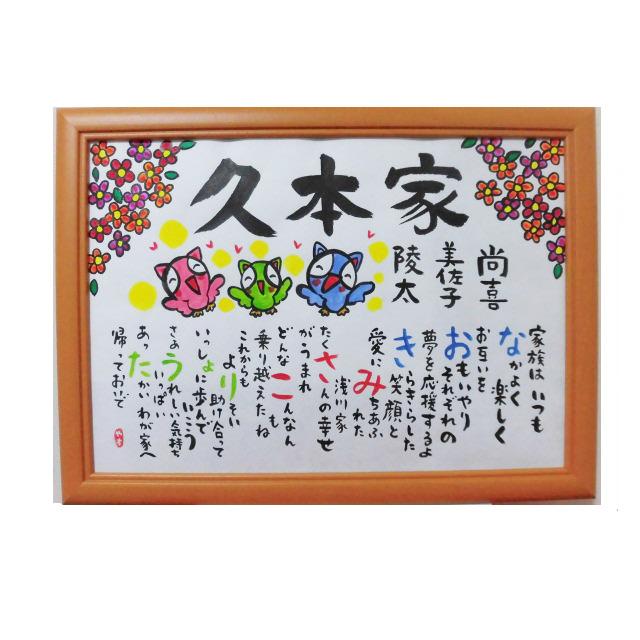 久本家
尚喜
美佐子
陵太
家族は いつも
なかよく 楽しく
お互いを
おもいやり
それぞれの
夢を応援するよ
きらきらした
笑顔と
愛に
みちあふれた
浅川家
たくさんの幸せ
がうまれ
どんな
こんなん
も
乗り越えたね
これからも
よりそい
助け合って
いっしょに歩んで
いこう
さぁ
うれしい気持ち
いっぱい
あったかいわが家へ
帰っておいで